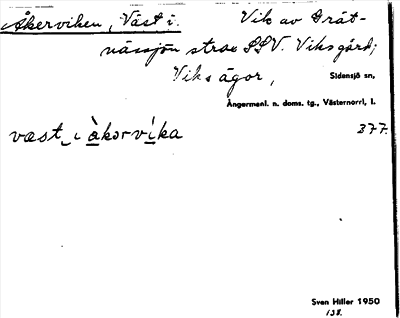 Åkerviken, Väst i. Vik av Drät-
nässjön strax SSV. Viksgård,
Viks ägor, Sidensjö sn,
Ångermanl. n. doms. tg., Västernorrl. l.
væst i åkərvika 377.
Sven Hiller 1950
138.